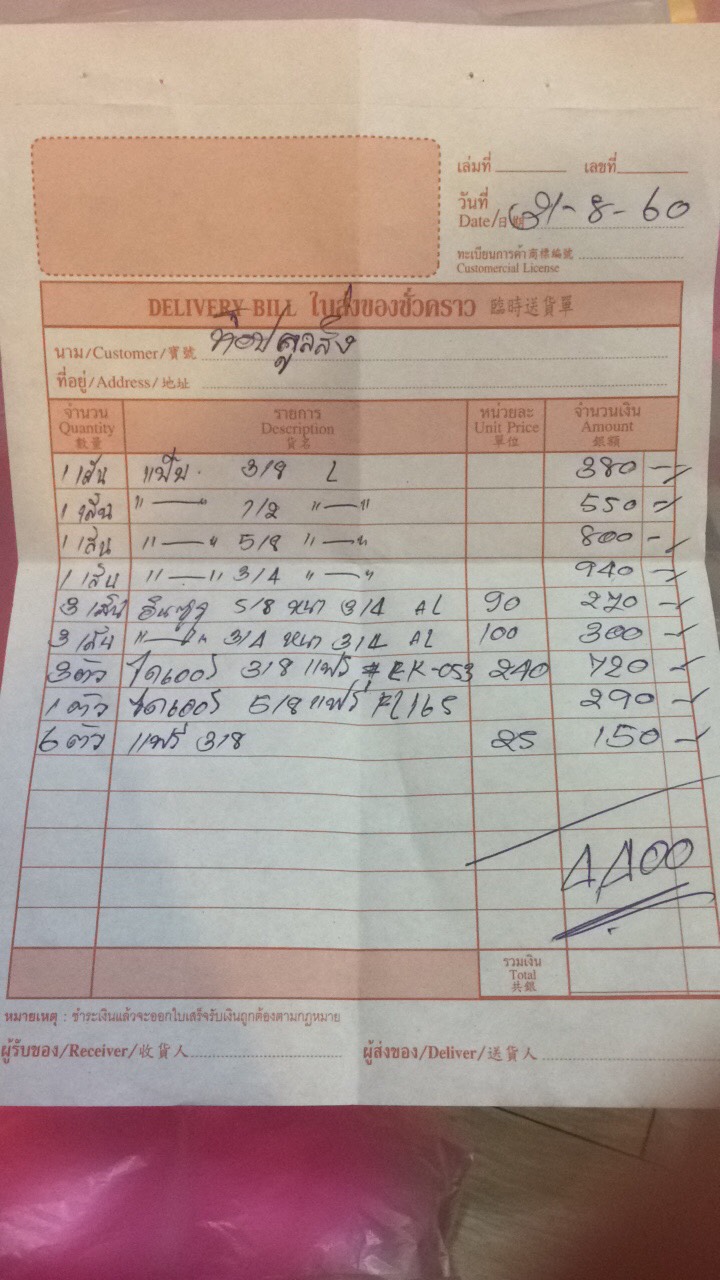 เล่มที่ เลขที่
วันที่
Date/日期 31-8-60
ทะเบียนการค้า 商標編號
Customercial License
DELIVERY BILL ใบส่งของชั่วคราว 臨時送貨單
นาม/Customer/寶號 ท๊อปคูลลิ่ง
ที่อยู่/Address/地址
จำนวน รายการ หน่วยละ จำนวนเงิน
Quantity Description Unit Price Amount
數量 貨名 單位 銀額
1 เส้น แป๊บ 3/8 L 380 -
1 เส้น " — " 1/2 " — " 550 -
1 เส้น " — " 5/8 " — " 800 -
1 เส้น " — " 3/4 " — " 940 -
3 เส้น อินซูล 5/8 หนา 3/4 AL 90 270 -
3 เส้น " — " 3/4 หนา 3/4 AL 100 300 -
3 ตัว ไดเออร์ 3/8 แฟร์ # EK-053 240 720 -
1 ตัว ไดเออร์ 5/8 แฟร์ 290 -
6 ตัว แฟร์ 3/8 25 150 -
4,400
รวมเงิน
Total
共銀
หมายเหตุ : ชำระเงินแล้วจะออกใบเสร็จรับเงินถูกต้องตามกฎหมาย
ผู้รับของ/Receiver/收貨人 ผู้ส่งของ/Deliver/送貨人